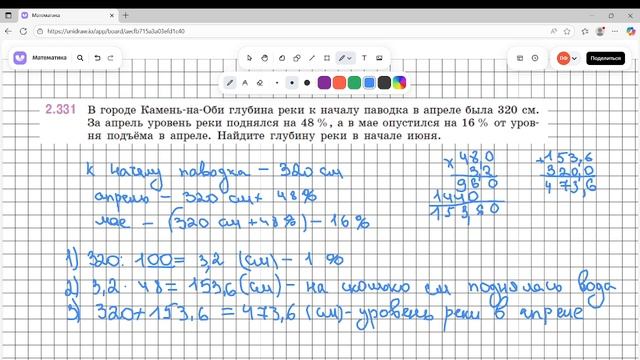 Математика
https://unidraw.io/app/board/aecfb715a3a03efd1c40
Математика
Поделиться
2.331 В городе Камень-на-Оби глубина реки к началу паводка в апреле была 320 см.
За апрель уровень реки поднялся на 48 %, а в мае опустился на 16 % от уров-
ня подъёма в апреле. Найдите глубину реки в начале июня.
к началу паводка – 320 см
апрель – 320 см + 48%
мае – (320 см + 48%) – 16%
× 48,0
3,2
960
1440
153,60
+ 153,6
320,0
473,6
1) 320 : 100 = 3,2 (см) – 1 %
2) 3,2 · 48 = 153,6 (см) – на сколько см поднялась вода
3) 320 + 153,6 = 473,6 (см) – уровень реки в апреле